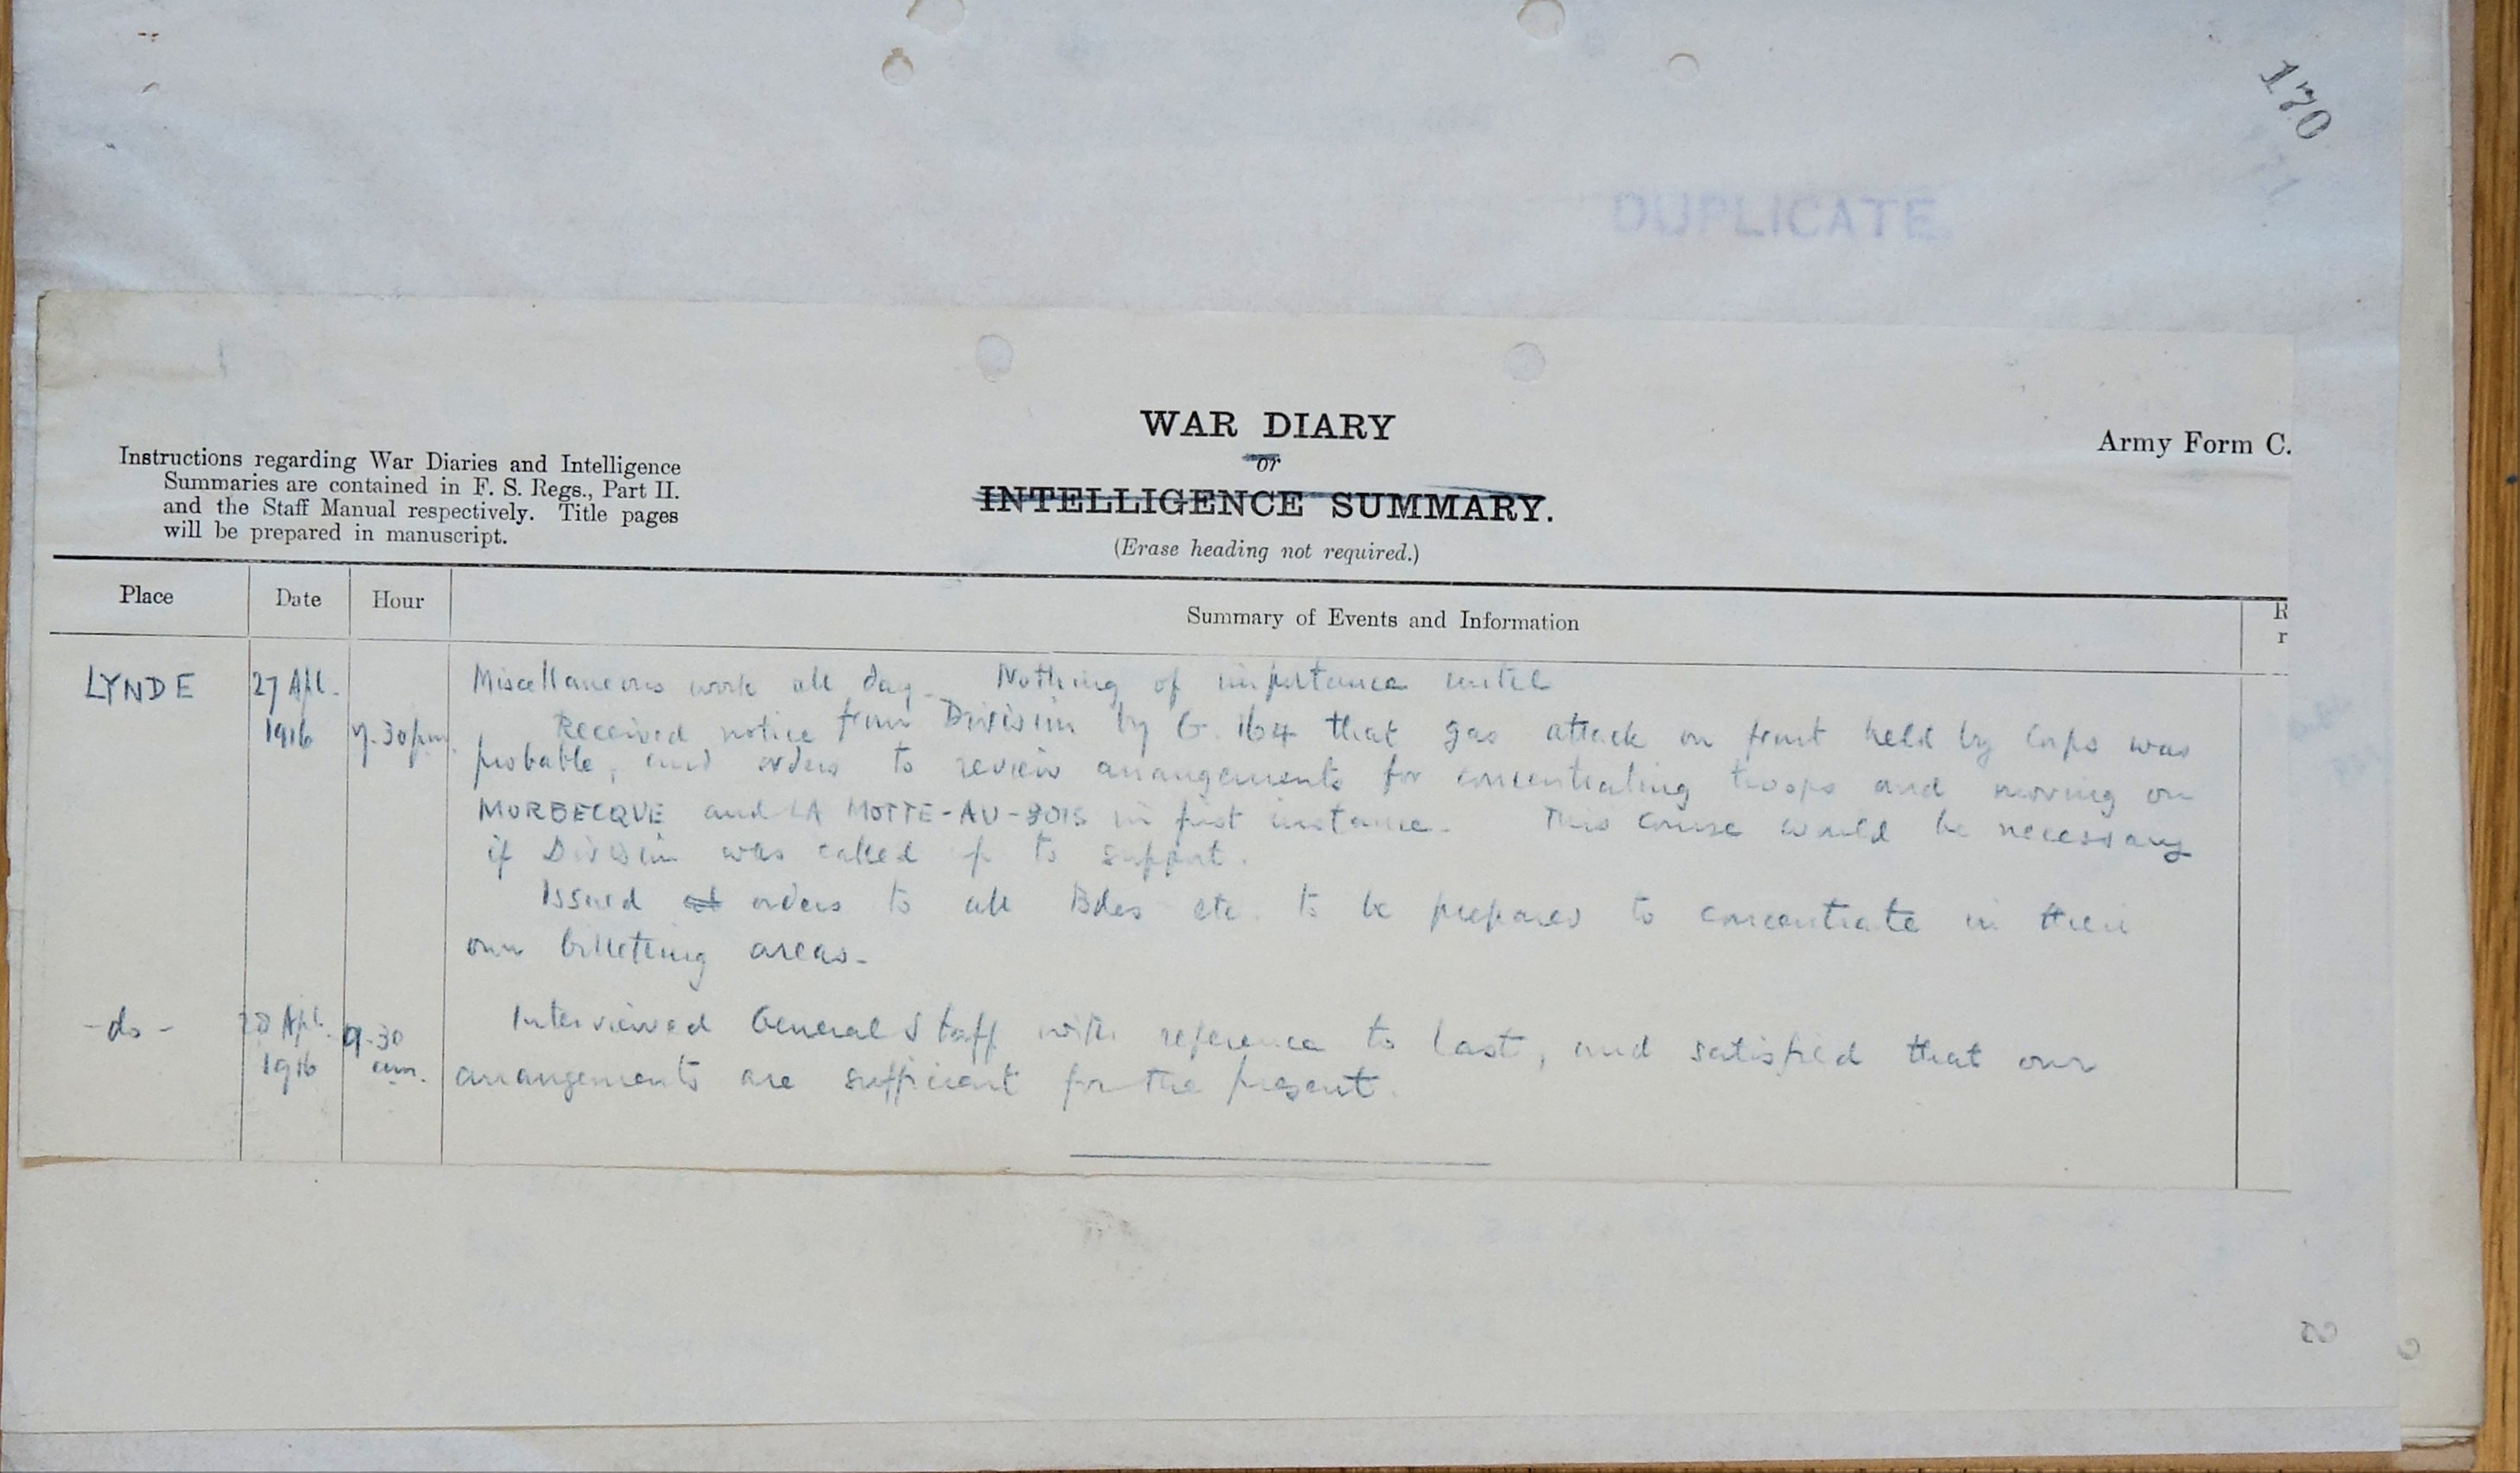 170
DUPLICATE.
WAR DIARY
or
INTELLIGENCE SUMMARY.
(Erase heading not required.)
Army Form C.
Instructions regarding War Diaries and Intelligence
Summaries are contained in F. S. Regs., Part II.
and the Staff Manual respectively. Title pages
will be prepared in manuscript.
Place Date Hour Summary of Events and Information R
r
LYNDE 27 Apl. Miscellaneous work all day. Nothing of importance until
1916 7.30pm. Received notice from Division by G. 164 that gas attack on front held by Corps was
probable, and orders to review arrangements for concentrating troops and moving on
MORBECQUE and LA MOTTE-AU-BOIS in first instance. This course would be necessary
if Division was called up to support.
Issued orders to all Bdes etc. to be prepared to concentrate in their
own billeting areas.
-do- 28 Apl. 9.30 Interviewed General Staff with reference to last, and satisfied that our
1916 am. arrangements are sufficient for the present.